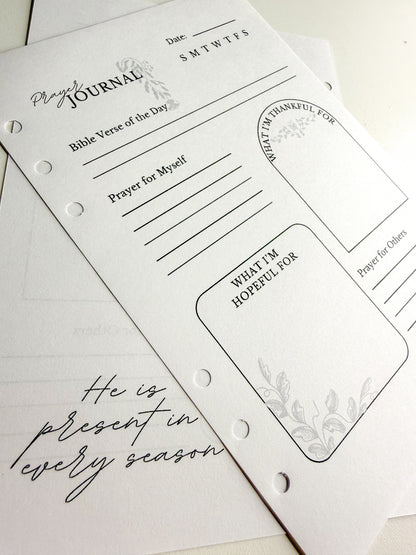 Date:
S M T W T F S
Prayer
JOURNAL
Bible Verse of the Day
WHAT I'M THANKFUL FOR
Prayer for Myself
Prayer for Others
WHAT I'M
HOPEFUL FOR
He is
present in
every season